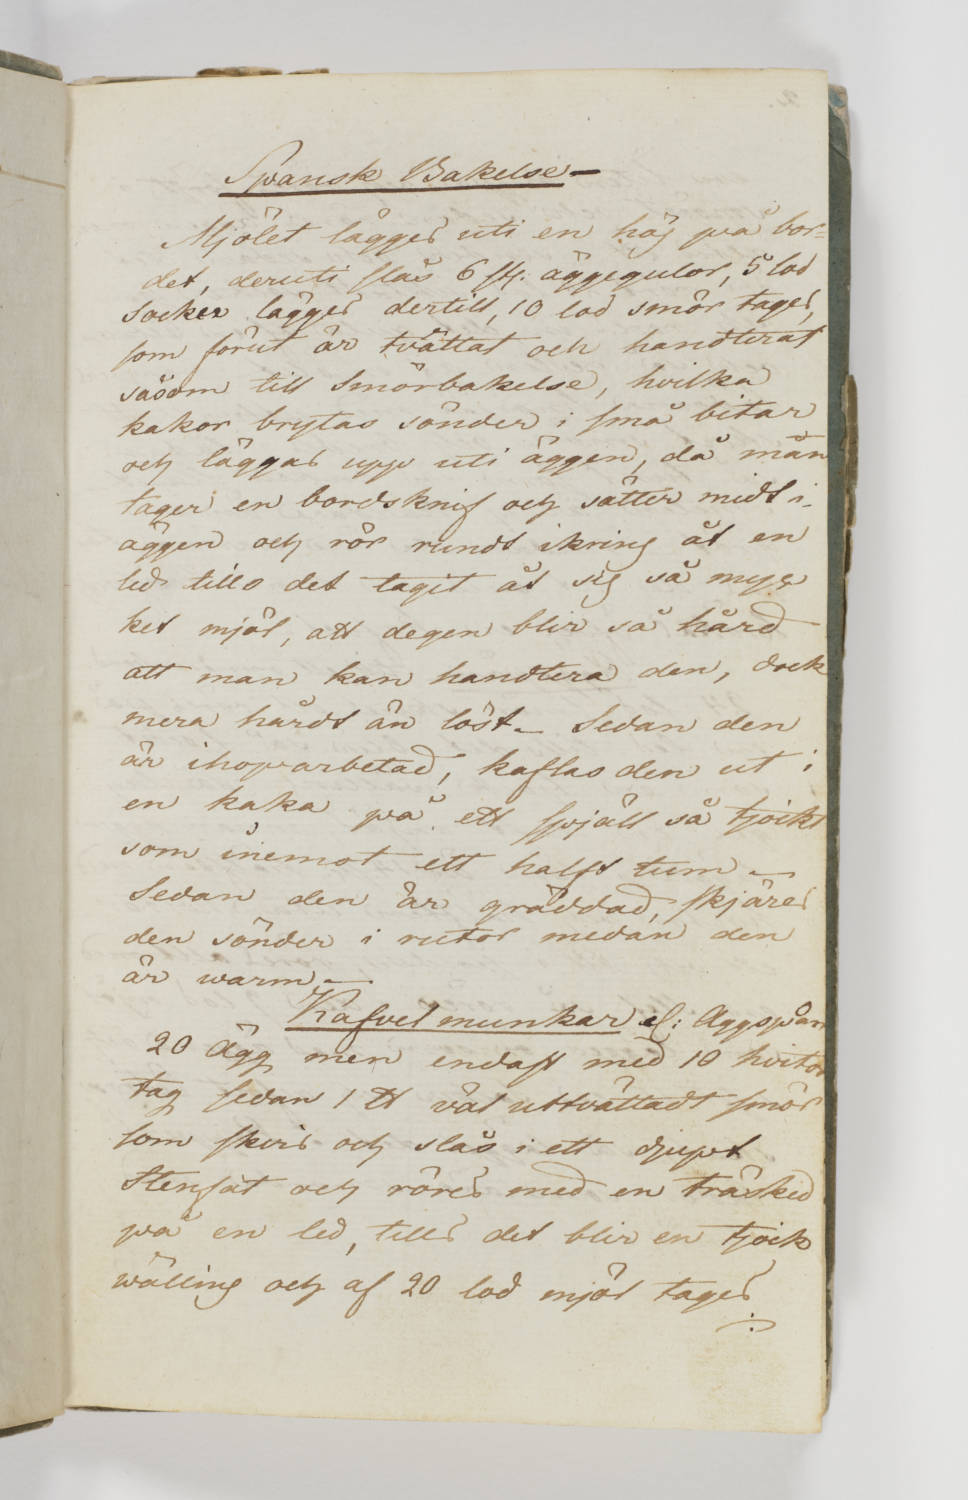 Spansk Bakelse –
Mjölet lägges uti en hög på bor=
det, deruti slås 6 st: äggegulor, 5 lod
socker lägges dertill, 10 lod smör tages,
som förut är tvättat och handterat
såsom till Smörbakelse, hvilka
kakor brytas sönder i små bitar
och läggas upp uti äggen, då man
tager en bordsknif och sätter midt i
äggen och rör rundt ikring åt en
led tills det tagit åt sig så myc
ket mjöl, att degen blir så hård
att man kan handtera den, dock
mera hårdt än löst – Sedan den
är ihoparbetad, kaflas den ut i
en kaka på ett spjäll så tjockt
som inemot ett halft tum –
Sedan den är gräddad, skjäres
den sönder i rutor medan den
är warm –
Kafvelmunkar el: Äggspån
20 Ägg men endast med 10 hvitor
tag sedan 1 ℔ väl uttvättadt smör
som skirs och slås i ett djupt
Stenfat och röres med en träsked
på en led, tills det blir en tjock
wälling och af 20 lod mjöl tages